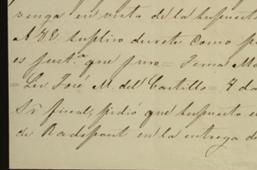 venga en vista de la respuesta
A V.E. suplico decrete como p
es just.ª que juro = Jerna Ma
= Lic. José M. del Castillo = 7 de
Sr. fiscal, pidió que respuesto e
de Radepont en la entrega de